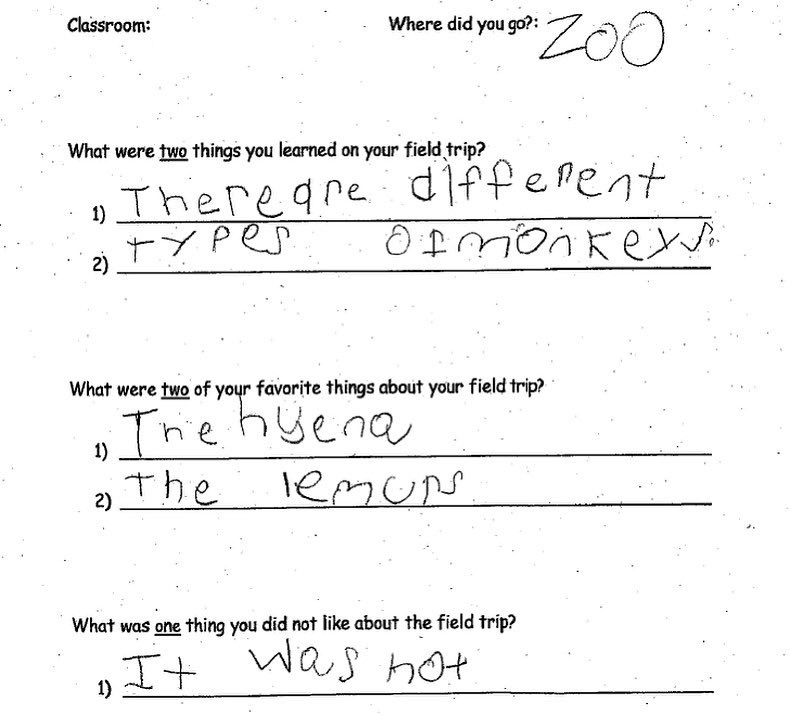 Classroom: Where did you go?: ZOO
What were two things you learned on your field trip?
1) There are different
2) types of monkeys.
What were two of your favorite things about your field trip?
1) The hyena
2) the lemurs
What was one thing you did not like about the field trip?
1) It was hot